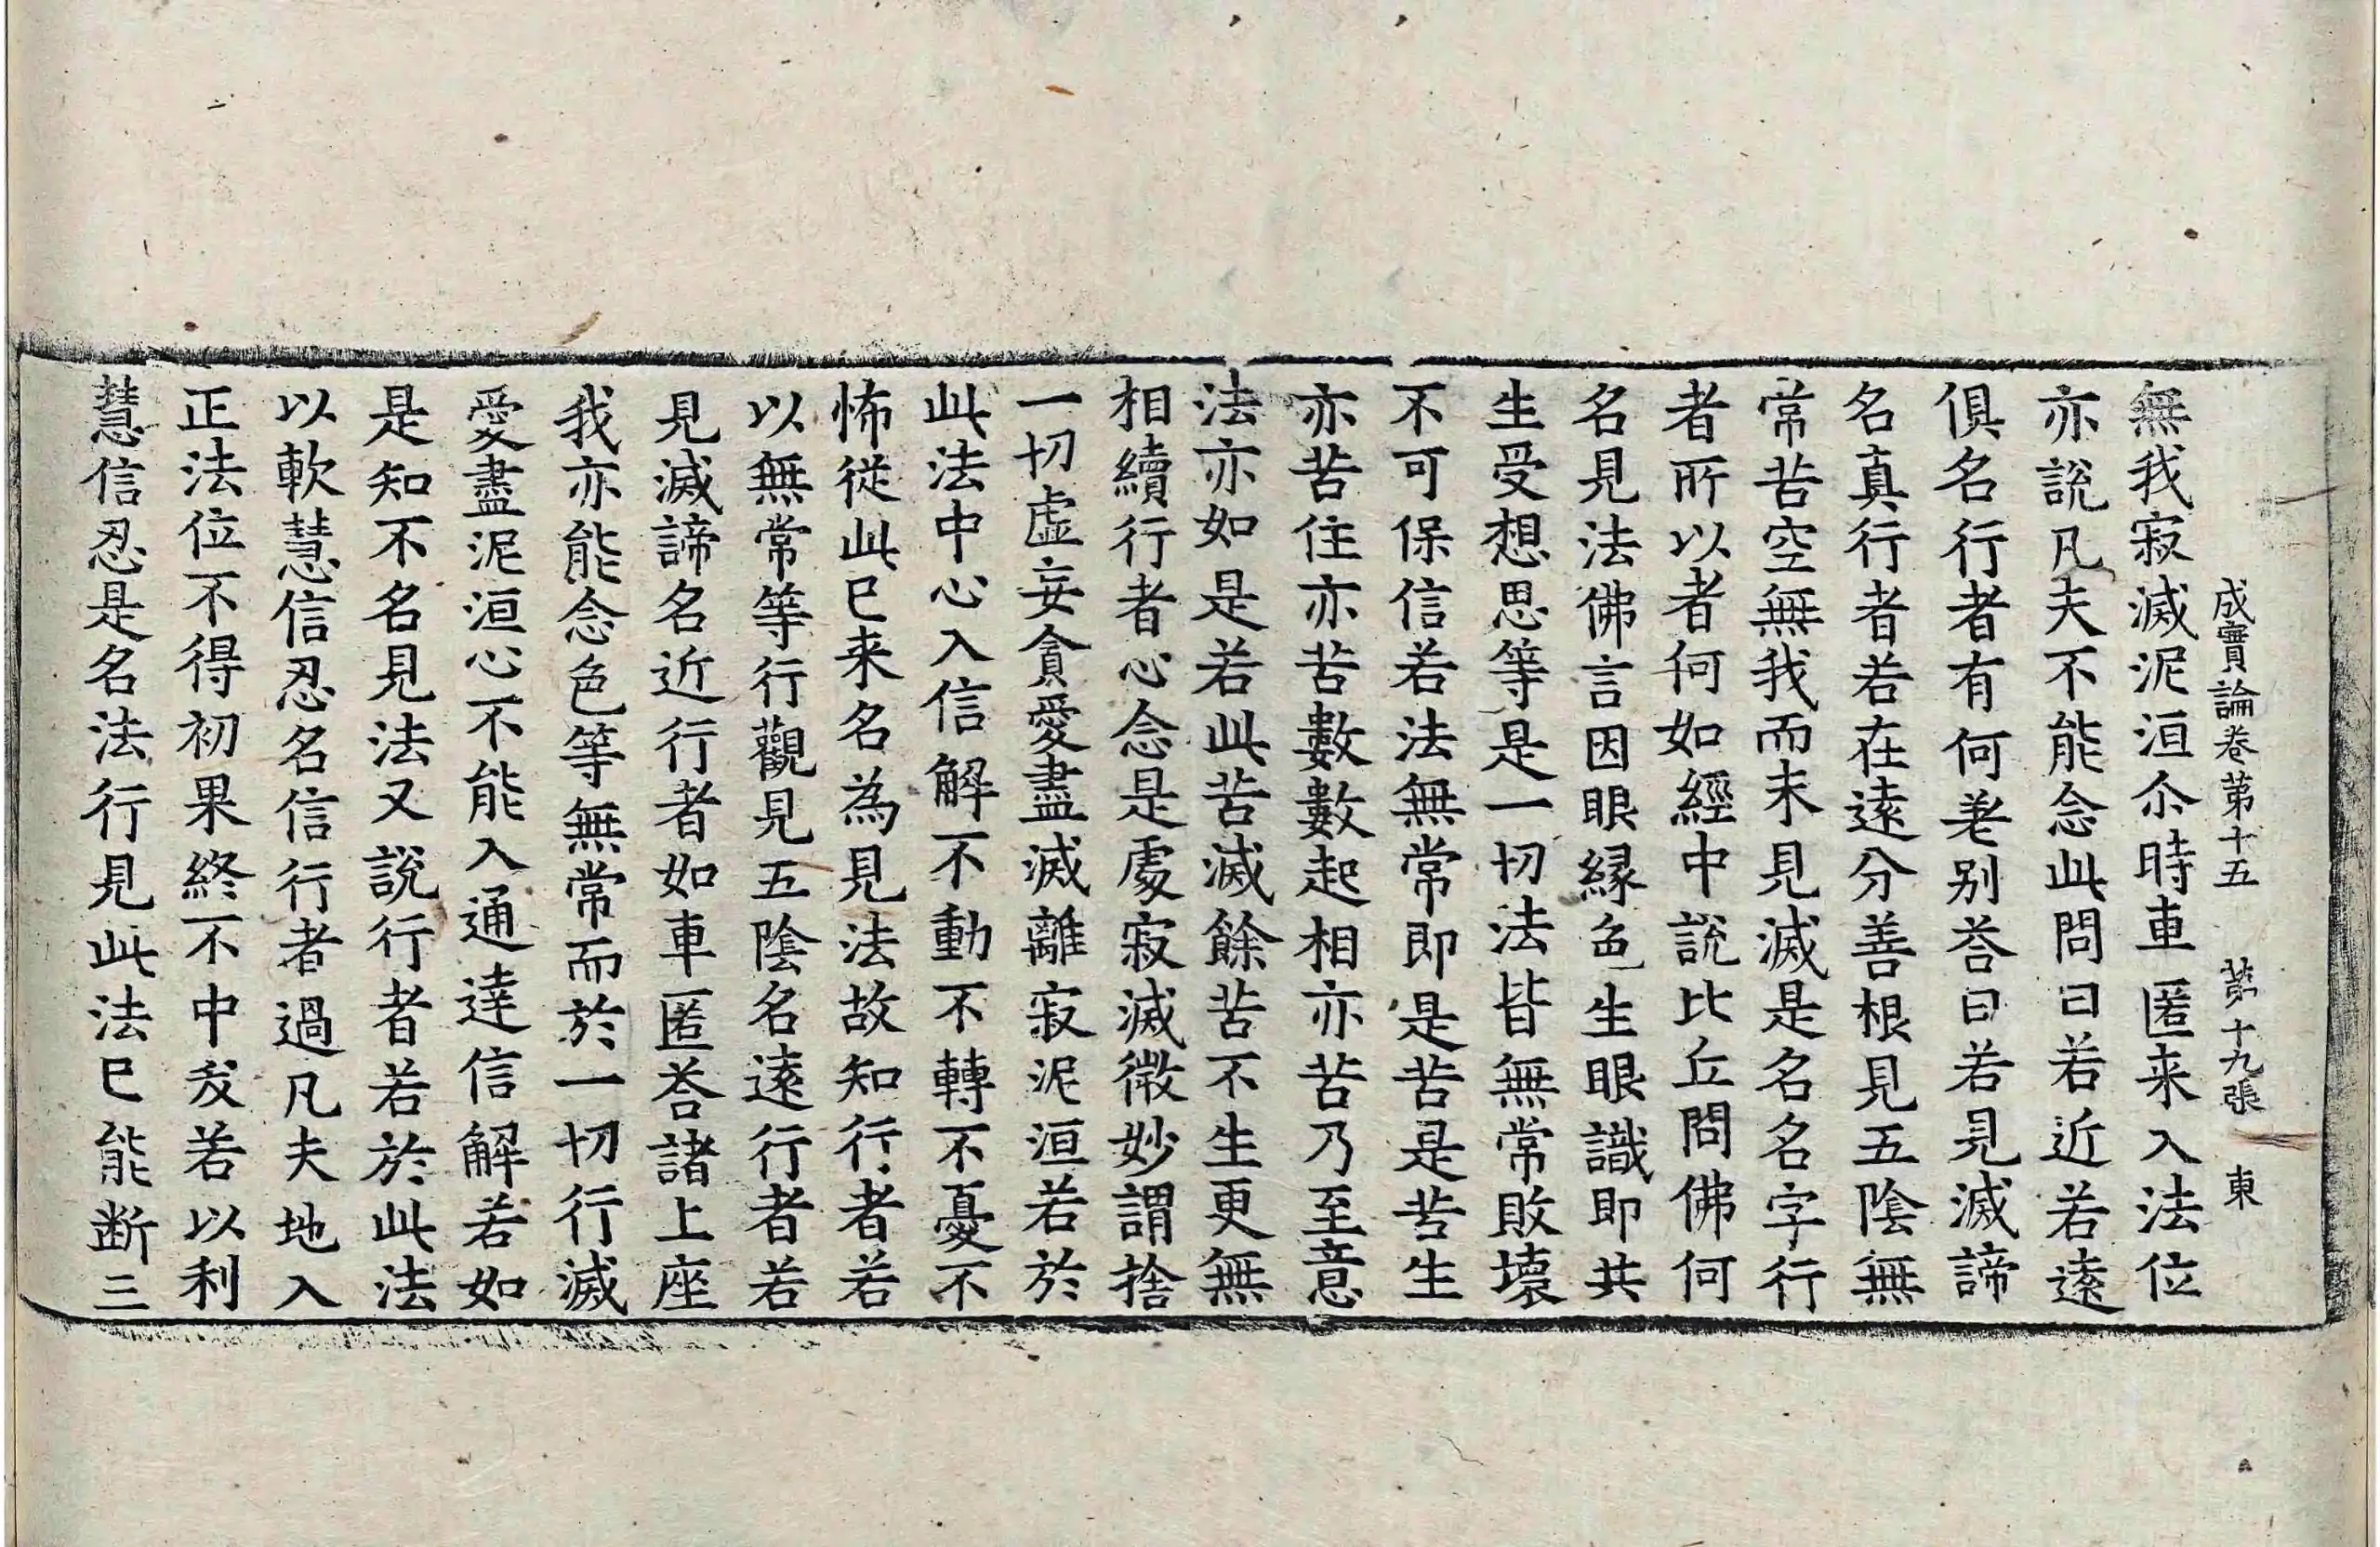 成實論卷第十五 第十九張 東
無我寂滅泥洹尒時車匿来入法位
亦說凡夫不能念此問曰若近若遠
俱名行者有何差别荅曰若見滅諦
名真行者若在遠分善根見五陰無
常苦空無我而未見滅是名名字行
者所以者何如經中說比丘問佛何
名見法佛言因眼緣色生眼識即共
生受想思等是一切法皆無常敗壞
不可保信若法無常即是苦是苦生
亦苦住亦苦數數起相亦苦乃至意
法亦如是若此苦滅餘苦不生更無
相續行者心念是處寂滅微妙謂捨
一切虛妄貪愛盡滅離寂泥洹若於
此法中心入信解不動不轉不憂不
怖従此已来名為見法故知行者若
以無常等行觀見五陰名遠行者若
見滅諦名近行者如車匿荅諸上座
我亦能念色等無常而於一切行滅
愛盡泥洹心不能入通達信解若如
是知不名見法又說行者若於此法
以軟慧信忍名信行者過凡夫地入
正法位不得初果終不中夭若以利
慧信忍是名法行見此法已能断三